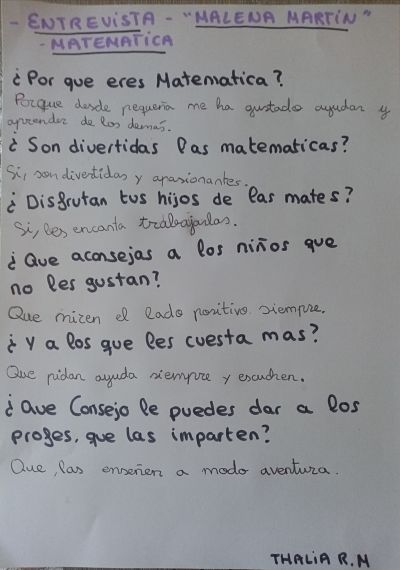 - ENTREVISTA - "MALENA MARTIN"
- MATEMATICA
¿Por que eres Matematica?
Porque desde pequeña me ha gustado ayudar y
aprender de los demás.
¿Son divertidas las matematicas?
Si, son divertidas y apasionantes.
¿Disfrutan tus hijos de las mates?
Si, les encanta trabajarlas.
¿Que aconsejas a los niños que
no les gustan?
Que miren el lado positivo siempre.
¿Y a los que les cuesta mas?
Que pidan ayuda siempre y escuchen.
¿Que Consejo le puedes dar a los
profes, que las imparten?
Que, las enseñen a modo aventura.
THALIA R.M